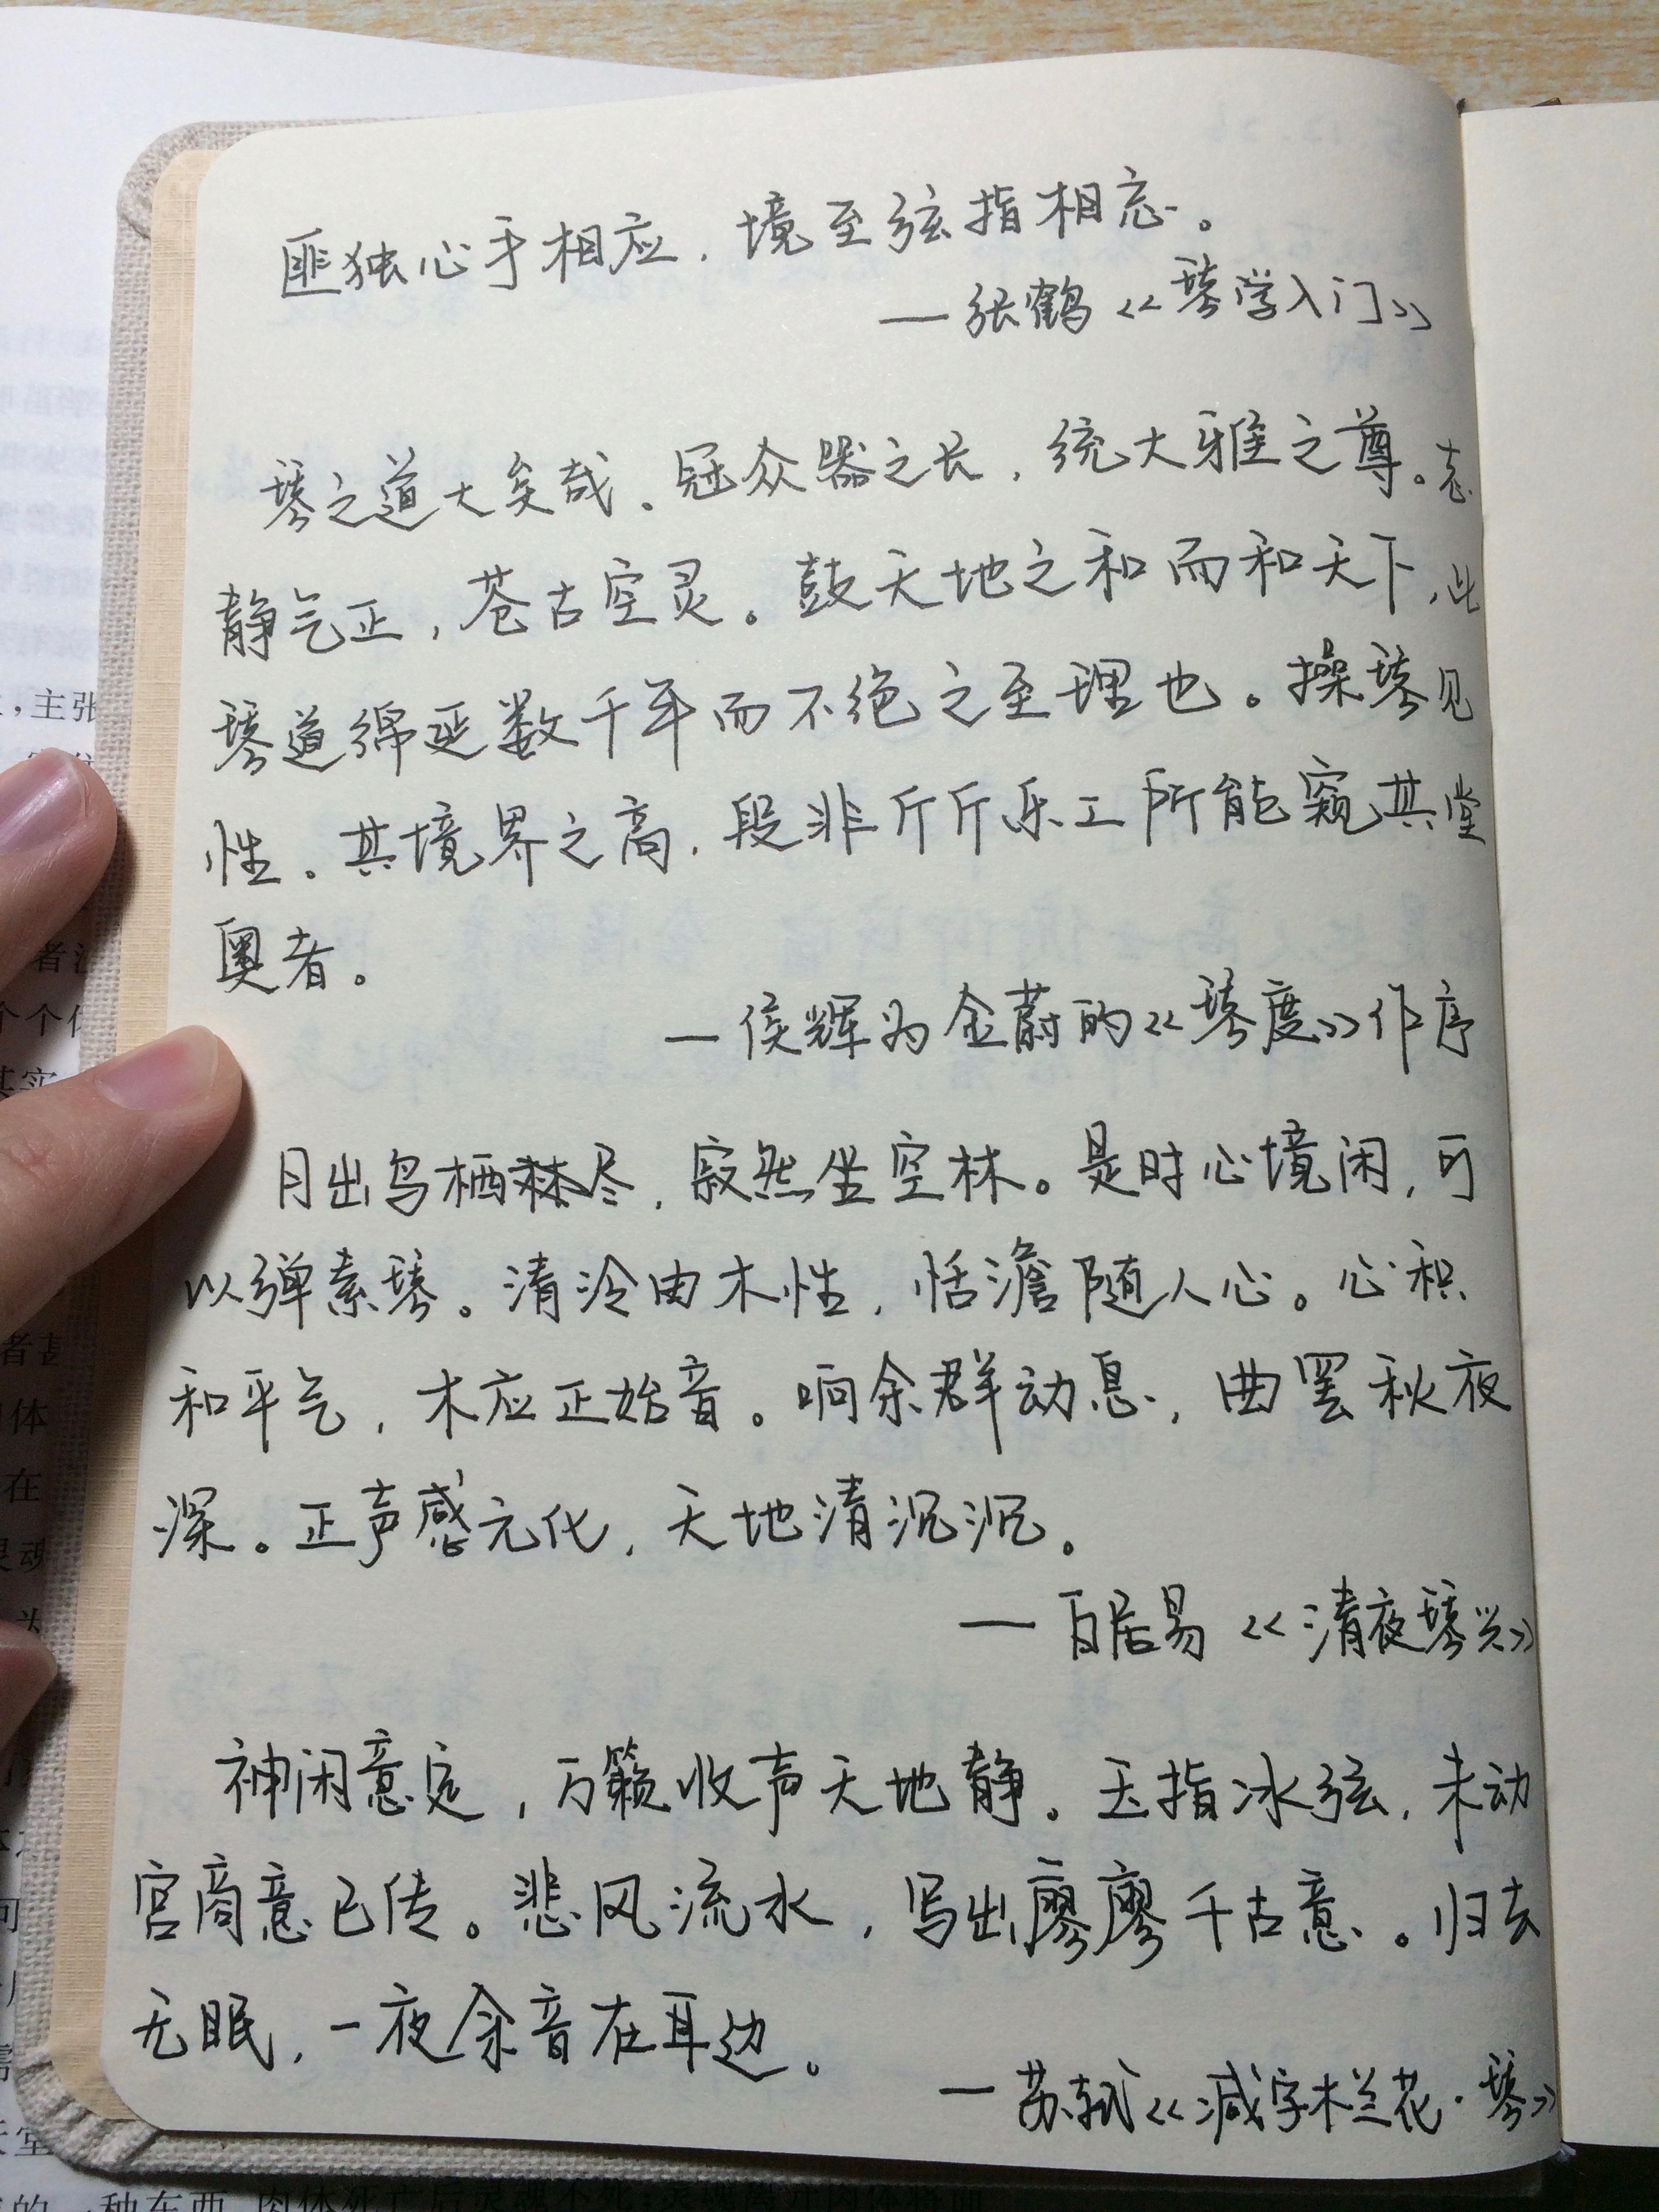 匪独心手相应，境至弦指相忘。
—张鹤《琴学入门》
琴之道大矣哉。冠众器之长，统大雅之尊。志
静气正，苍古空灵。鼓天地之和而和天下，此
琴道绵延数千年而不绝之至理也。操琴见
性。其境界之高，段非斤斤乐工所能窥其堂
奥者。
—侯辉为金蔚的《琴度》作序
月出鸟栖尽，寂然坐空林。是时心境闲，可
以弹素琴。清泠由木性，恬澹随人心。心积
和平气，木应正始音。响余群动息，曲罢秋夜
深。正声感元化，天地清沉沉。
—白居易《清夜琴兴》
神闲意定，万籁收声天地静。玉指冰弦，未动
宫商意已传。悲风流水，写出廖廖千古意。归去
无眠，一夜余音在耳边。
—苏轼《减字木栏花·琴》
，主张
者
个个
其实
者
体
在
为
种东西